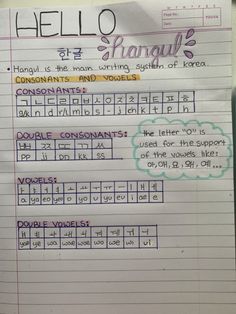 HELLO
한글 hangul
• Hangul is the main writing system of korea.
CONSONANTS AND VOWELS
CONSONANTS:
ㄱ ㄴ ㄷ ㄹ ㅁ ㅂ ㅅ ㅇ ㅈ ㅊ ㅋ ㅌ ㅍ ㅎ
g/k n d r/l m b s - j ch k t p h
DOUBLE CONSONANTS:
ㅃ ㅉ ㄸ ㄲ ㅆ
pp jj DD kk ss
the letter "O" is
used for the support
of the vowels like:
아, 애, 요, 왜, 예...
VOWELS:
ㅏ ㅑ ㅓ ㅕ ㅗ ㅛ ㅜ ㅠ ㅡ ㅣ ㅐ ㅔ
a ya eo yeo o yo u yu eu i ae e
DOUBLE VOWELS:
yae ye wa wae woe wo we wi ui